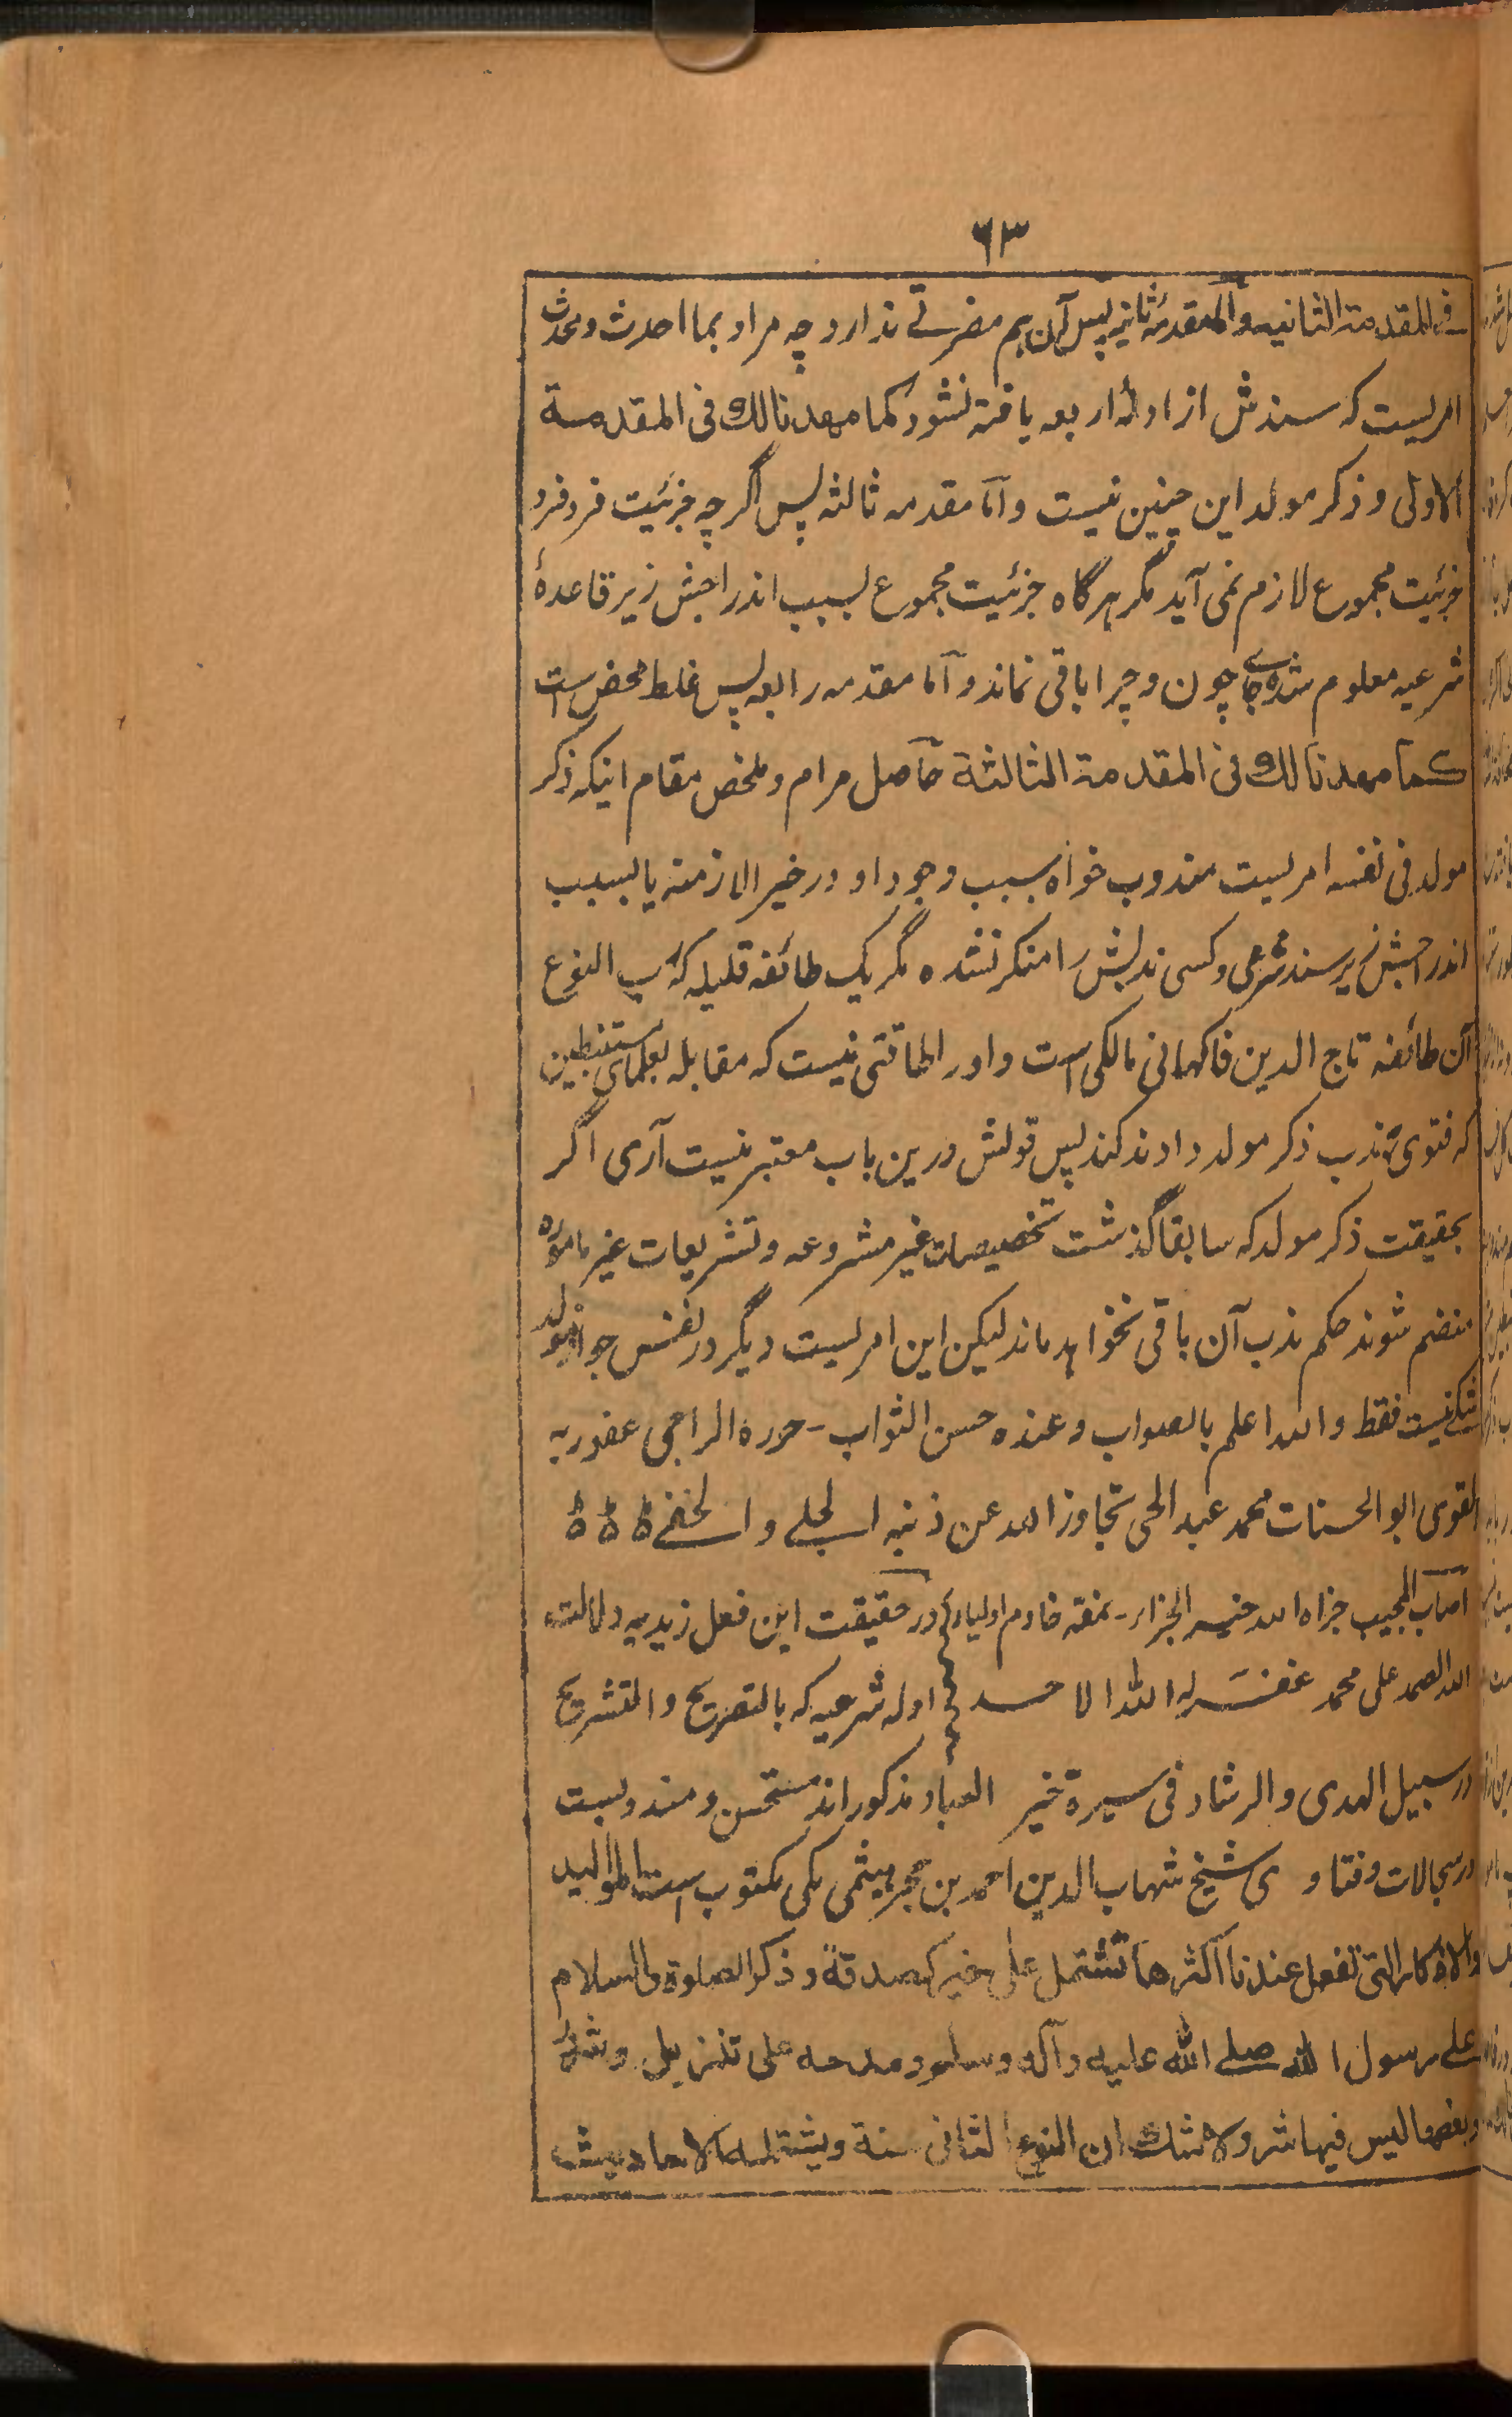 ۶۳
فی المقدمة الثانیه واما مقدمۂ ثانیه پس آن هم مضرتے ندارد چه مراد بما احدث ومحدث
امریست که سندش از ادلۂ اربعه یافته نشود کما مهدنا لك فی المقدمة
الاولی و ذکر مولد این چنین نیست و اما مقدمه ثالثه پس اگرچه جزئیت فرد فرد
جزئیت مجموع لازم نمی آید مگر هرگاه جزئیت مجموع بسبب اندراجش زیر قاعدۂ
شرعیه معلوم شد جاے چون و چرا باقی نماند و اما مقدمه رابعه پس غلط محض است
کما مهدنا لك فی المقدمة الثالثة حاصل مرام و ملخص مقام اینکه ذکر
مولد فی نفسه امریست مندوب خواه بسبب وجود او در خیر الازمنه یا بسبب
اندراجش زیر سند شرعی و کسی ندبش را منکر نشده مگر یک طائفه قلیله که رب النوع
آن طائفه تاج الدین فاکهانی مالکی است و او را طاقتی نیست که مقابله بعلمای مستنبطین
که فتوی بندب ذکر مولد دادند کند پس قولش درین باب معتبر نیست آری اگر
بحقیقت ذکر مولد که سابقا گذشت تخصیصات غیر مشروعه و تشریعات غیر ماموره
منضم شوند حکم ندب آن باقی نخواهد ماند لیکن این امریست دیگر در نفس جواز مولد
شکے نیست فقط والله اعلم بالصواب وعنده حسن الثواب - حرره الراجی عفو ربه
القوی ابو الحسنات محمد عبد الحی تجاوز الله عن ذنبه الجلے والخفے ه ه ه
اصاب المجیب جزاه الله خیر الجزاء - نمقه خادم اولیاء در حقیقت این فعل زید به دلالت
الله الصمد علی محمد غفر له الله الاحد ادله شرعیه که بالتصریح والتشریح
در سبیل الهدی والرشاد فی سیرة خیر العباد مذکور اند مستحسن و مندوبست
در سجالات و فتاوی شیخ شهاب الدین احمد بن حجر هیثمی مکی مکتوب است الموالید
والاذکار التی تفعل عندنا اکثرها تشتمل علی خیر کصدقة و ذکر الصلوة والسلام
علے رسول الله صلے الله علیه وآله وسلم ومدحه علی تنزیل و شر
وبعضها لیس فیها شر ولا شك ان النوع الثانی سنة ویشتمله الاحادیث